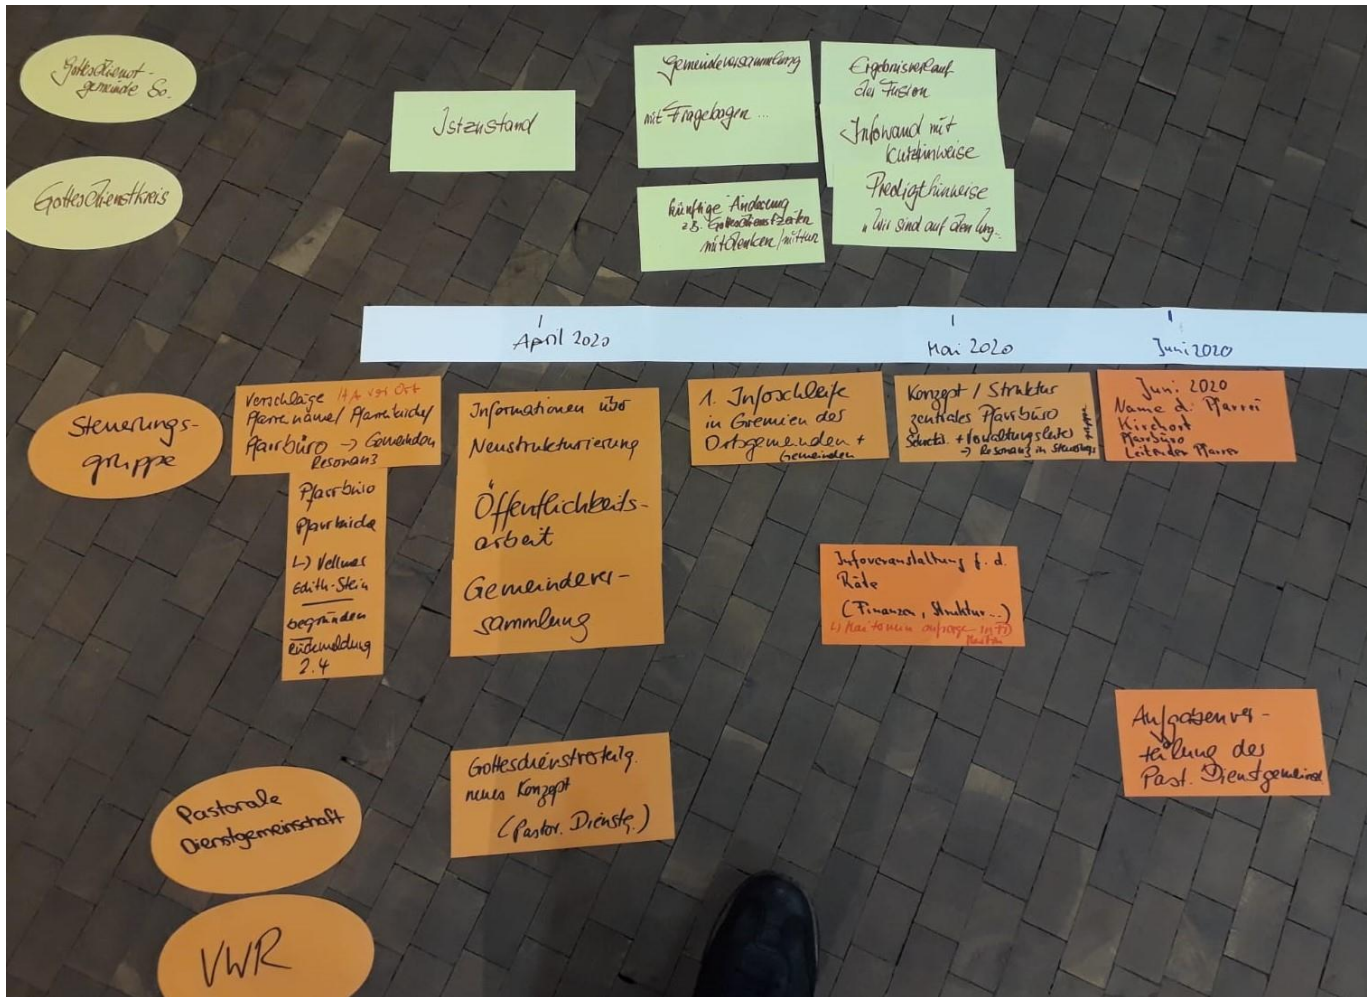 Gottesdienst-
gemeinde So.
Gottesdienstkreis
Istzustand
Gemeindeversammlung
mit Fragebogen ...
künftige Änderung
z.B. Gottesdienstzeiten
mitdenken /
Ergebnisverlauf
der Fusion
Infowand mit
Kurzhinweise
Predigthinweise
"Wir sind auf dem Weg..
April 2020
Mai 2020
Juni 2020
Steuerungs-
gruppe
Vorschläge HA vor Ort
Pfarreiname/ Pfarrkirche/
Pfarrbüro → Gemeinden
Resonanz
Pfarrbüro
Pfarrkirche
↳ Vellmar
Edith-Stein
begründen
Rückmeldung
2.4
Informationen über
Neustrukturierung
Öffentlichkeits-
arbeit
Gemeindever-
sammlung
1. Infoschleife
in Gremien der
Ortsgemeinden +
Gemeinden
Konzept / Struktur
zentrales Pfarrbüro
Sekretä. + Verwaltungsleiter
→ Resonanz in Steuerungs
gruppe
Juni 2020
Name d. Pfarrei
Kirchort
Pfarrbüro
Leitender Pfarrer
Infoveranstaltung f. d.
Räte
(Finanzen, Struktur...)
↳ Maitermin
Pastorale
Dienstgemeinschaft
Gottesdienstordng.
neues Konzept
(Pastor. Dienstg.)
Aufgabenver-
teilung der
Past. Dienstgemeinsch
VWR